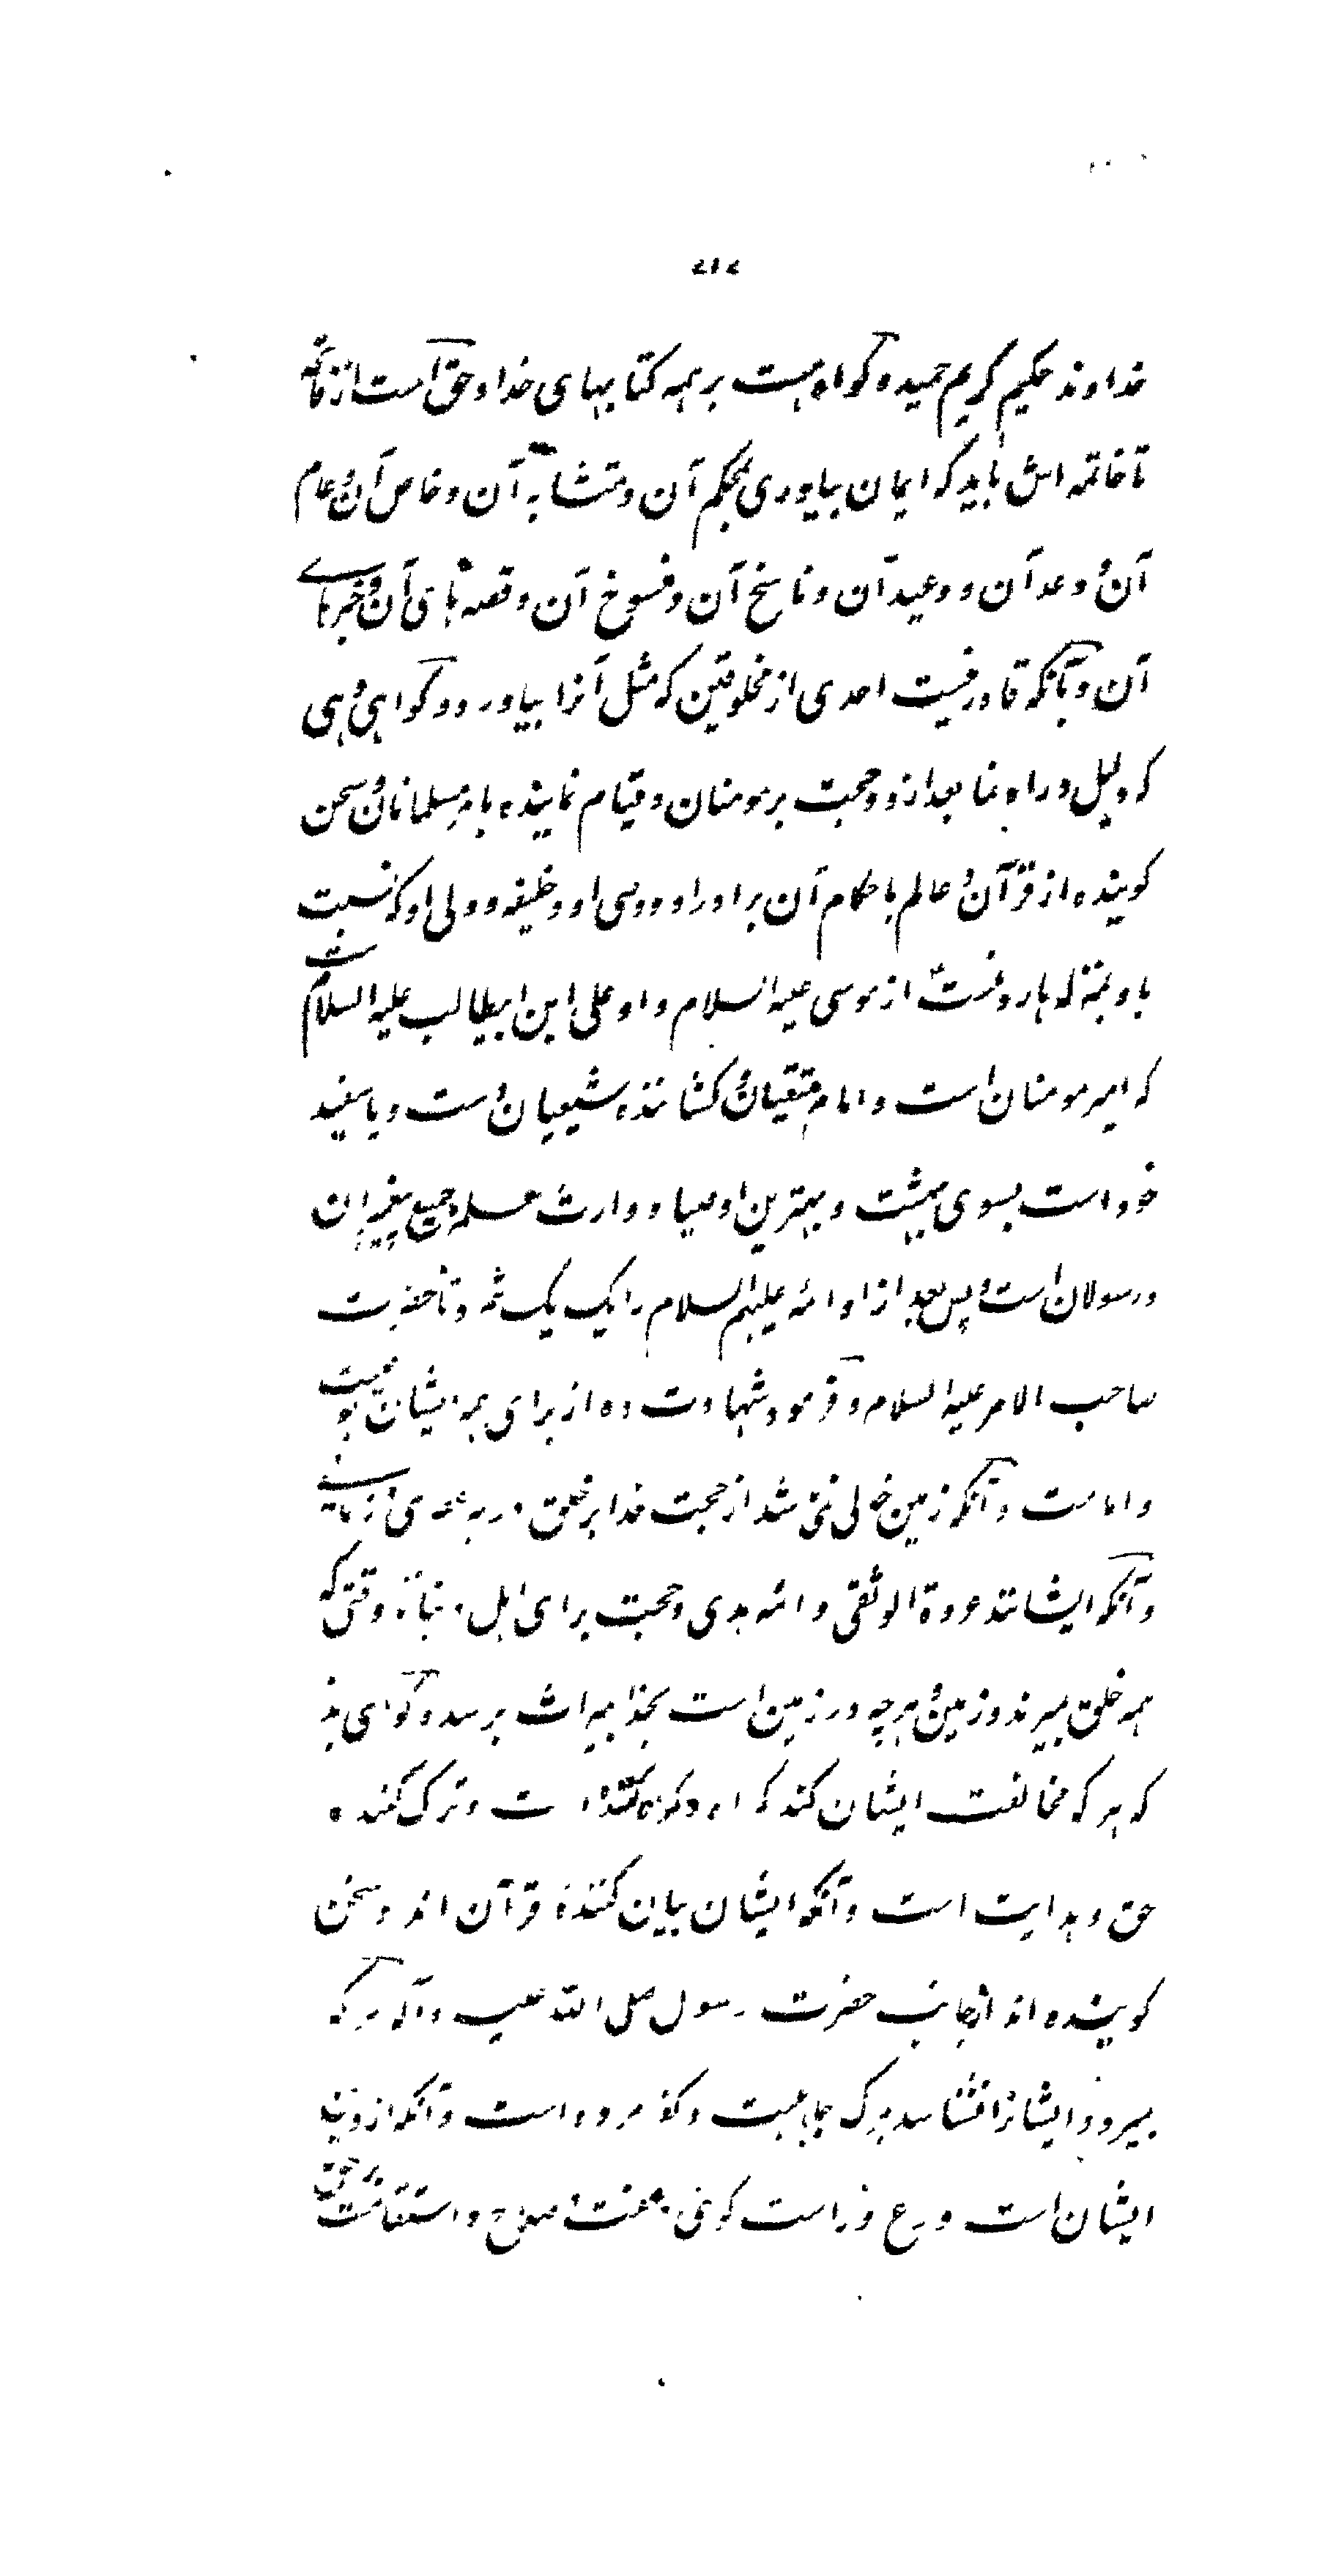 خداوند حکیم کریم حمید و گواه هست بر همه کتابهای خدا و حق است از فاتحه
تا خاتمه اش باید که ایمان بیاوری بمحکم آن و متشابه آن و خاص آن و عام
آن و وعد آن و وعید آن و ناسخ آن و منسوخ آن و قصه های آن و خبرهای
آن و بآنکه قادر نیست احدی از مخلوقین که مثل آنرا بیاورد و گواهی دهی
که دلیل و راه نما بعد ازو و حجت بر مومنان و قیام نماینده بامر مسلمانان و سخن
گوینده از قرآن و عالم باحکام آن برادر او و وصی او و خلیفه و ولی او که نسبت
باو بمنزله هارونست از موسی علیه السلام و او علی ابن ابیطالب علیه السلام است
که امیر مومنان است و امام متقیان و کشاننده شیعیان
خود است بسوی بهشت و بهترین اوصیا و وارث علم جمیع پیغمبران
و رسولان است و پس بعد از او ائمه علیهم السلام را یک یک تا حضرت
صاحب الامر علیه السلام و فرمود شهادت ده از برای همه ایشان بوصیت
و امامت و آنکه زمین خالی نمی شد از حجت خدا بر خلق در هر عصری و زمانی
و آنکه ایشانند عروة الوثقی و ائمه هدی و حجت برای اهل دنیا تا وقتی که
همه خلق بمیرند و زمین و هر چه در زمین است بخدا بمیراث برسد و گواهی بده
که هر که مخالفت ایشان کند گمراه و گمراه کننده است و ترک کننده
حق و هدایت است و آنکه ایشان بیان کننده قرآن اند و سخن
گوینده اند از جانب حضرت رسول صلی الله علیه و آله هر که
بمیرد و ایشانرا نشناسد بمرگ جاهلیت و کفر مرده است و آنکه از دین
ایشان است ورع و راست گوئی و عفت و صلاح و استقامت بر حق